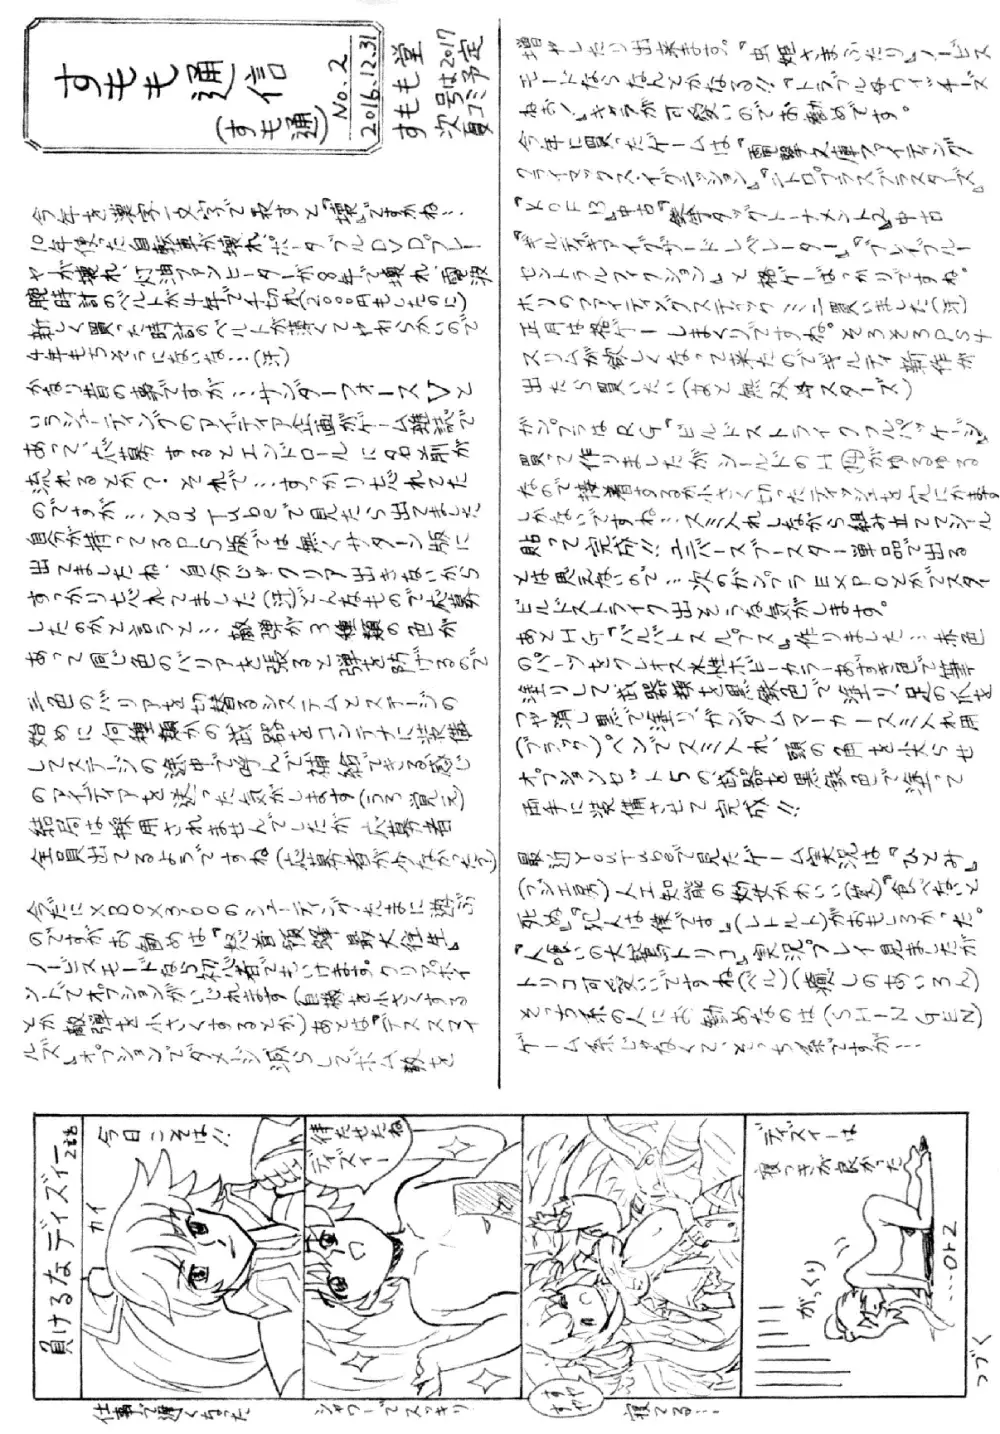 すもも通信
(すも通)
No.2
2016.12.31
すもも堂
次号は2017
夏コミ予定
今年を漢字一文字で表すと『壊』ですかね…
10年使った自転車が壊れ、ポータブルDVDプレー
ヤーが壊れ、灯油ファンヒーターが8年で壊れ、電波
腕時計のベルトが4年で千切れ(2000円もしたのに)
新しく買った時計のベルトが薄くてやわらかいので
4年もちそうにないな…(汗)
かなり昔の事ですが…サンダーフォースVと
いうシューティングのアイディア企画がゲーム雑誌で
あって、応募するとエンドロールに名前が
流れるとか?それで…すっかり忘れてた
のですが…YouTubeで見たら出てました
自分が持ってるPS版では無くサターン版に
出てましたね、自分じゃクリア出きないから
すっかり忘れてました(汗)どんなもので応募
したのかと言うと…敵弾が3種類の色が
あって同じ色のバリアを張ると弾を防げるので
三色のバリアを切替るシステムとステージの
始めに何種類かの武器をコンテナに装備
してステージの途中で呼んで補給できる感じ
のアイディアを送った気がします(うろ覚え)
結局は採用されませんでしたが応募者
全員出てるようですね(応募者が少なかった?)
今だにXBOX360のシューティングたまに遊ぶ
のですがお勧めは『怒首領蜂最大往生』
ノービスモードなら初心者でもいけます。クリアポイ
ントでオプションがいじれます(自機を小さくする
とか敵弾を小さくするとか)あとは『デススマイ
ルズ』オプションでダメージ減らしてボム数を
増やしたり出来ます。『虫姫さまふたり』ノービス
モードならなんとかなる!!『トラブル☆ウィッチーズ
ねお!』キャラが可愛いのでお勧めです。
今年に買ったゲームは『電撃文庫ファイティング
クライマックス・イグニッション』『ニトロプラスブラスターズ』
『KOF13』中古『鉄拳タッグトーナメント2』中古
『ギルティギアイグザードレベレーター』『ブレイブルー
セントラルフィクション』と格ゲーばっかりですね。
ホリのファイティングスティックミニ買いました(汗)
正月は格ゲーしまくりですね。そろそろPS4
スリムが欲しくなって来たのでギルティ新作が
出たら買いたい(あと無双☆スターズ)
ガンプラはRG『ビルドストライクフルパッケージ』
買って作りましたがシールドのHがゆるゆる
なので接着するか小さく切ったティッシュを穴にかます
しかないですね…スミ入れしながら組み立ててシール
貼って完成!!ユニバースブースター単品で出る
とは思えないので…次のガンプラEXPOとかでスター
ビルドストライク出そうな気がします。
あとHG『バルバトスルプス』作りました…赤色
のパーツをクレオス水性ホビーカラーあずき色で筆
塗りして武器類を黒鉄色で塗り、足の穴を
つや消し黒で塗り、ガンダムマーカースミ入れ用
(ブラウン)ペンでスミ入れ、頭の角を尖らせ
オプションセット5の武器を黒鉄色で塗って
両手に装備させて完成!!
最近YouTubeで見たゲーム実況は『ひとみ』
(フジ工房)人工知能の幼女かわいい(笑)『食べないと
死ぬ』『犯人は僕です』(レトルト)がおもしろかった。
『人喰いの大鷲トリコ』実況プレイ見ましたが
トリコ可愛いですね(ベル)(癒しのあいろん)
そっち系の人にお勧めなのは(SHIN GEN)
ゲーム系じゃなくて、そっち系ですが…
負けるなディズィー
カイ
今日こそは!!
仕事で遅くなった
待たせたね
ディズィー
シャワーでスッキリ
すやすや
寝てる…
ディズィーは
寝つきが良かった
がっくり
…orz
つづく